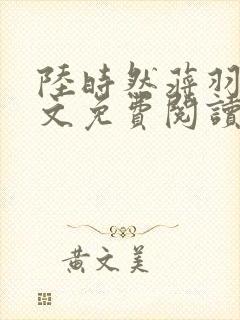 陸時然蔣羽
文免費閱讀
黃文美